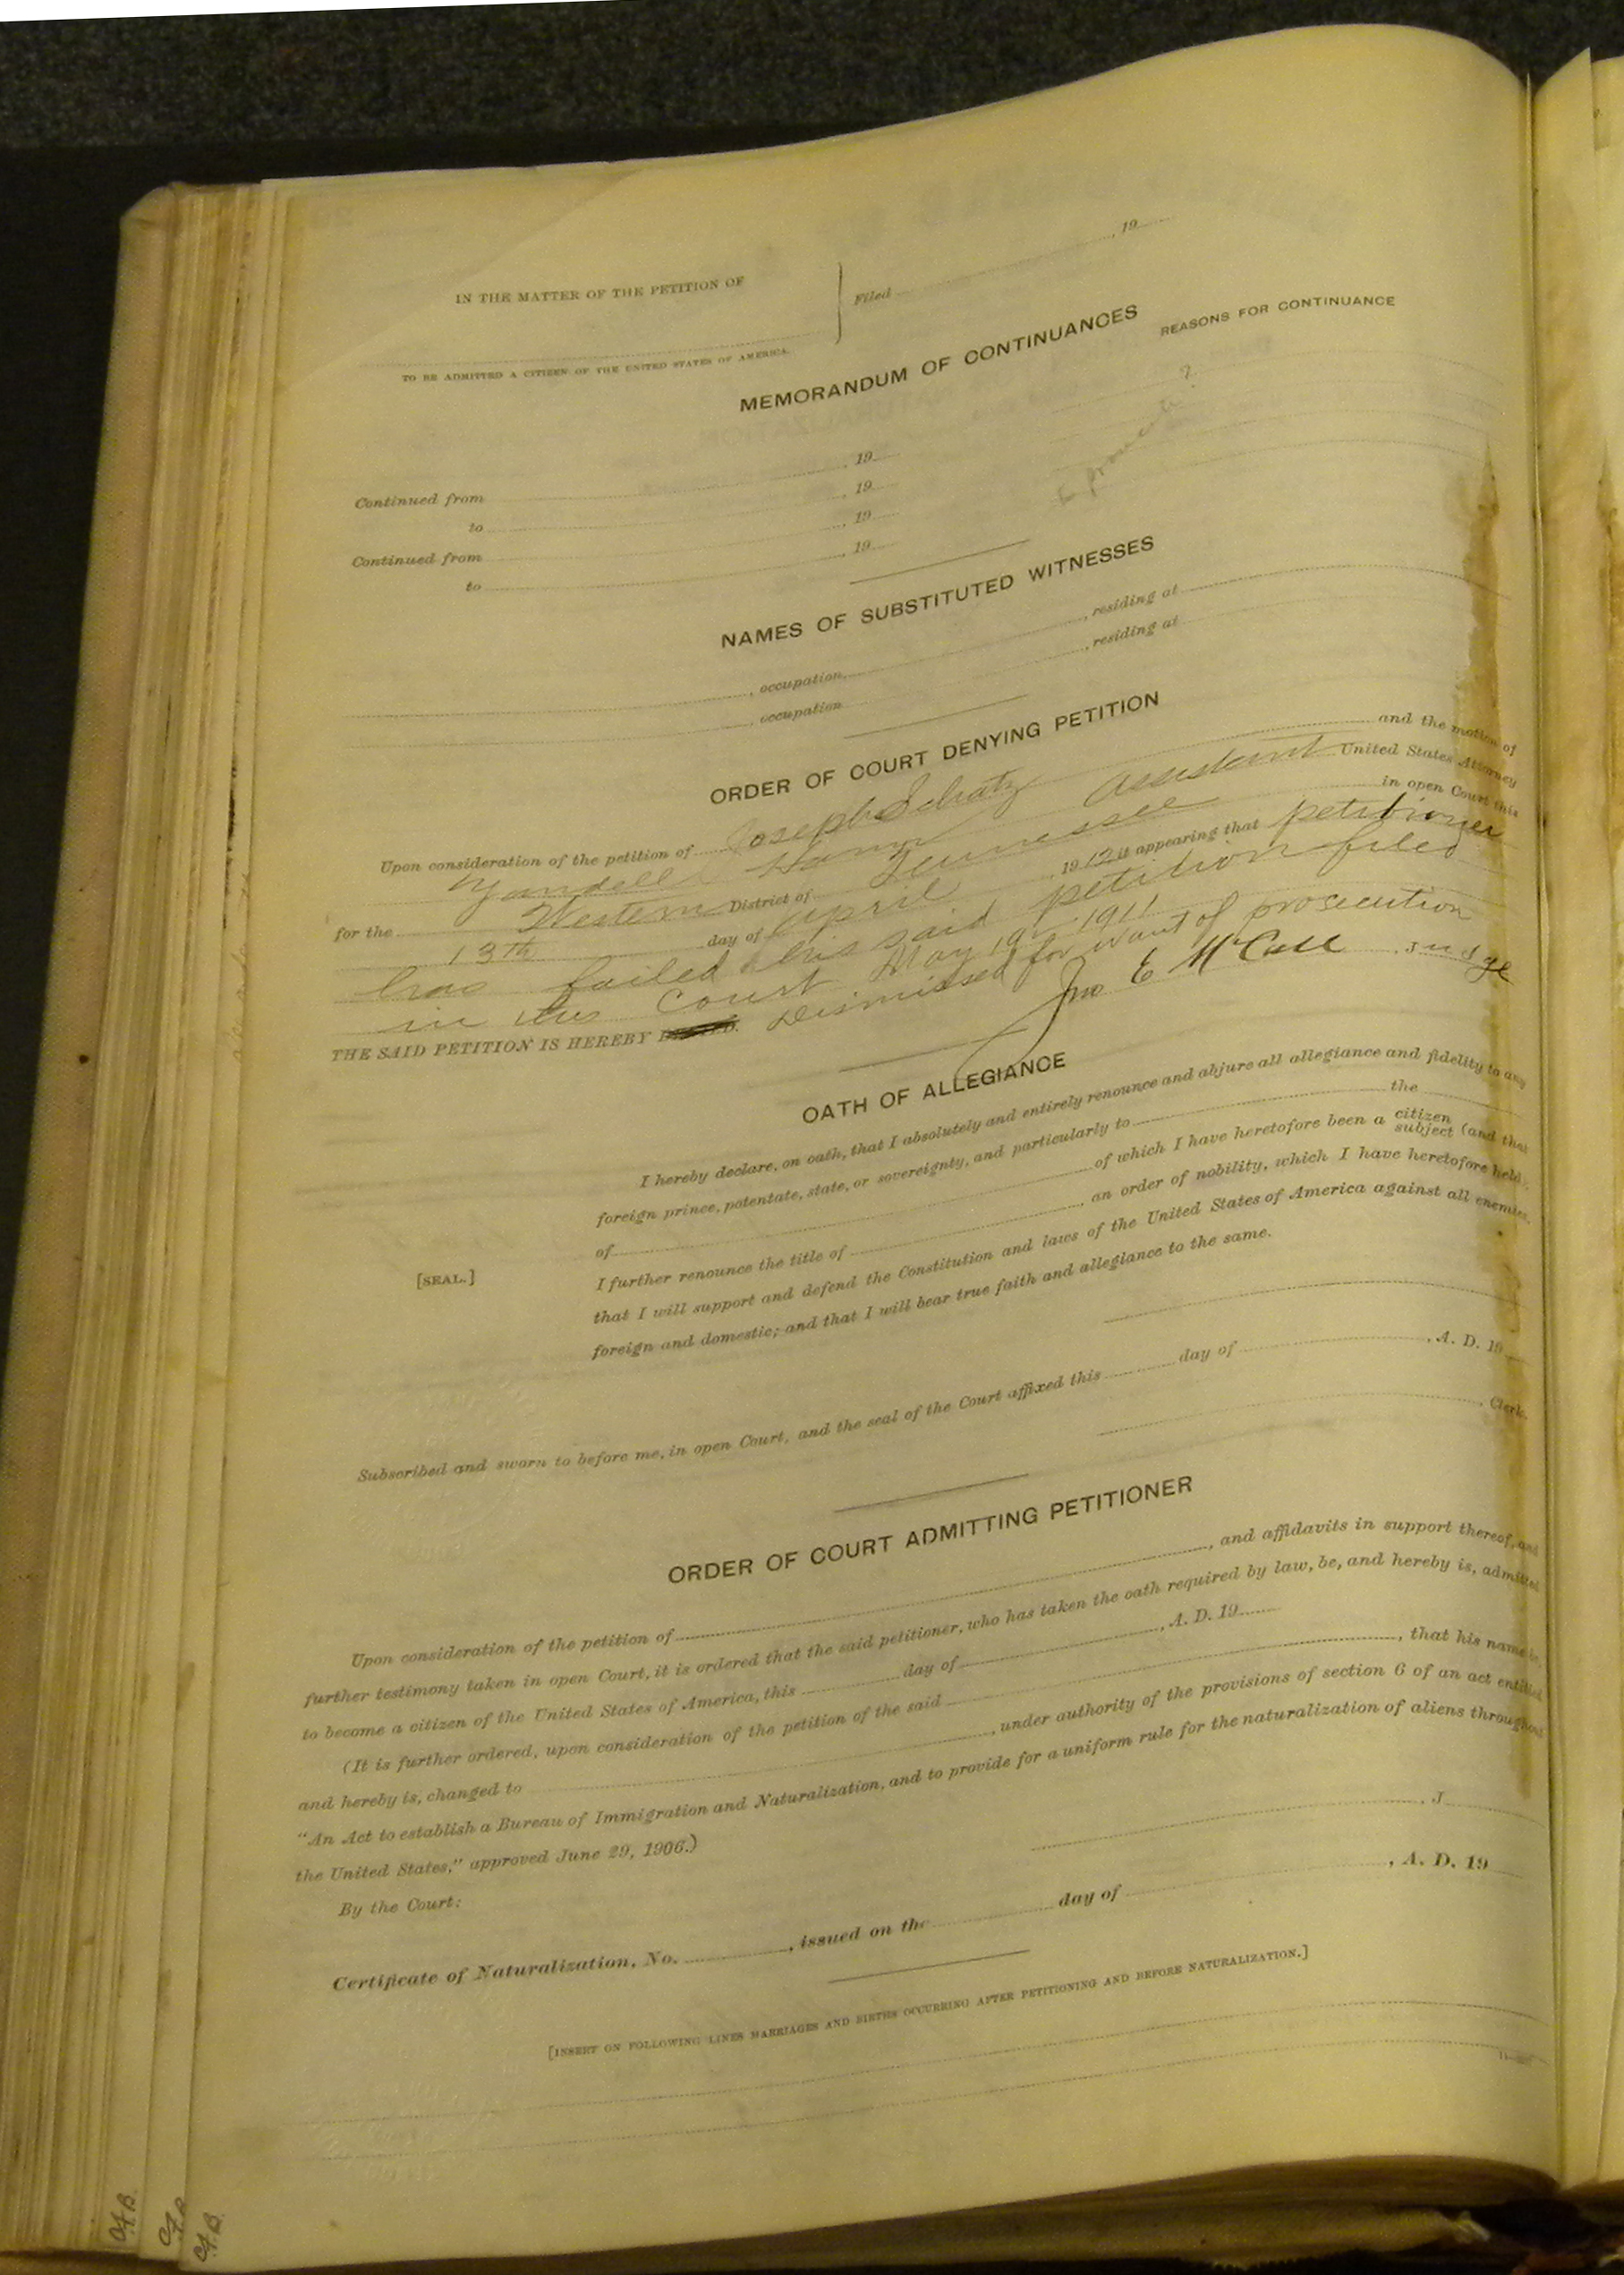 IN THE MATTER OF THE PETITION OF
Filed , 19
TO BE ADMITTED A CITIZEN OF THE UNITED STATES OF AMERICA.
MEMORANDUM OF CONTINUANCES
REASONS FOR CONTINUANCE
Continued from , 19
to , 19
Continued from , 19
to , 19
NAMES OF SUBSTITUTED WITNESSES
, occupation , residing at
, occupation , residing at
ORDER OF COURT DENYING PETITION
Upon consideration of the petition of Joseph Schatz and the motion of
Yandell Assistant United States Attorney
for the Western District of Tennessee in open Court this
13th day of April , 1912 it appearing that petitioner
has failed his said petition filed
in this Court May 19 1911
THE SAID PETITION IS HEREBY Dismissed for want of prosecution
Jno E McCall , Judge
OATH OF ALLEGIANCE
I hereby declare, on oath, that I absolutely and entirely renounce and abjure all allegiance and fidelity to any
foreign prince, potentate, state, or sovereignty, and particularly to the
of of which I have heretofore been a citizen subject (and that
I further renounce the title of , an order of nobility, which I have heretofore held)
that I will support and defend the Constitution and laws of the United States of America against all enemies,
foreign and domestic; and that I will bear true faith and allegiance to the same.
[SEAL.]
Subscribed and sworn to before me, in open Court, and the seal of the Court affixed this day of , A. D. 19
, Clerk.
ORDER OF COURT ADMITTING PETITIONER
Upon consideration of the petition of , and affidavits in support thereof, and
further testimony taken in open Court, it is ordered that the said petitioner, who has taken the oath required by law, be, and hereby is, admitted
to become a citizen of the United States of America, this day of , A. D. 19
(It is further ordered, upon consideration of the petition of the said , that his name be,
and hereby is, changed to , under authority of the provisions of section 6 of an act entitled
"An Act to establish a Bureau of Immigration and Naturalization, and to provide for a uniform rule for the naturalization of aliens throughout
the United States," approved June 29, 1906.)
By the Court:
, J
Certificate of Naturalization, No. , issued on the day of , A. D. 19
[INSERT ON FOLLOWING LINES MARRIAGES AND BIRTHS OCCURRING AFTER PETITIONING AND BEFORE NATURALIZATION.]